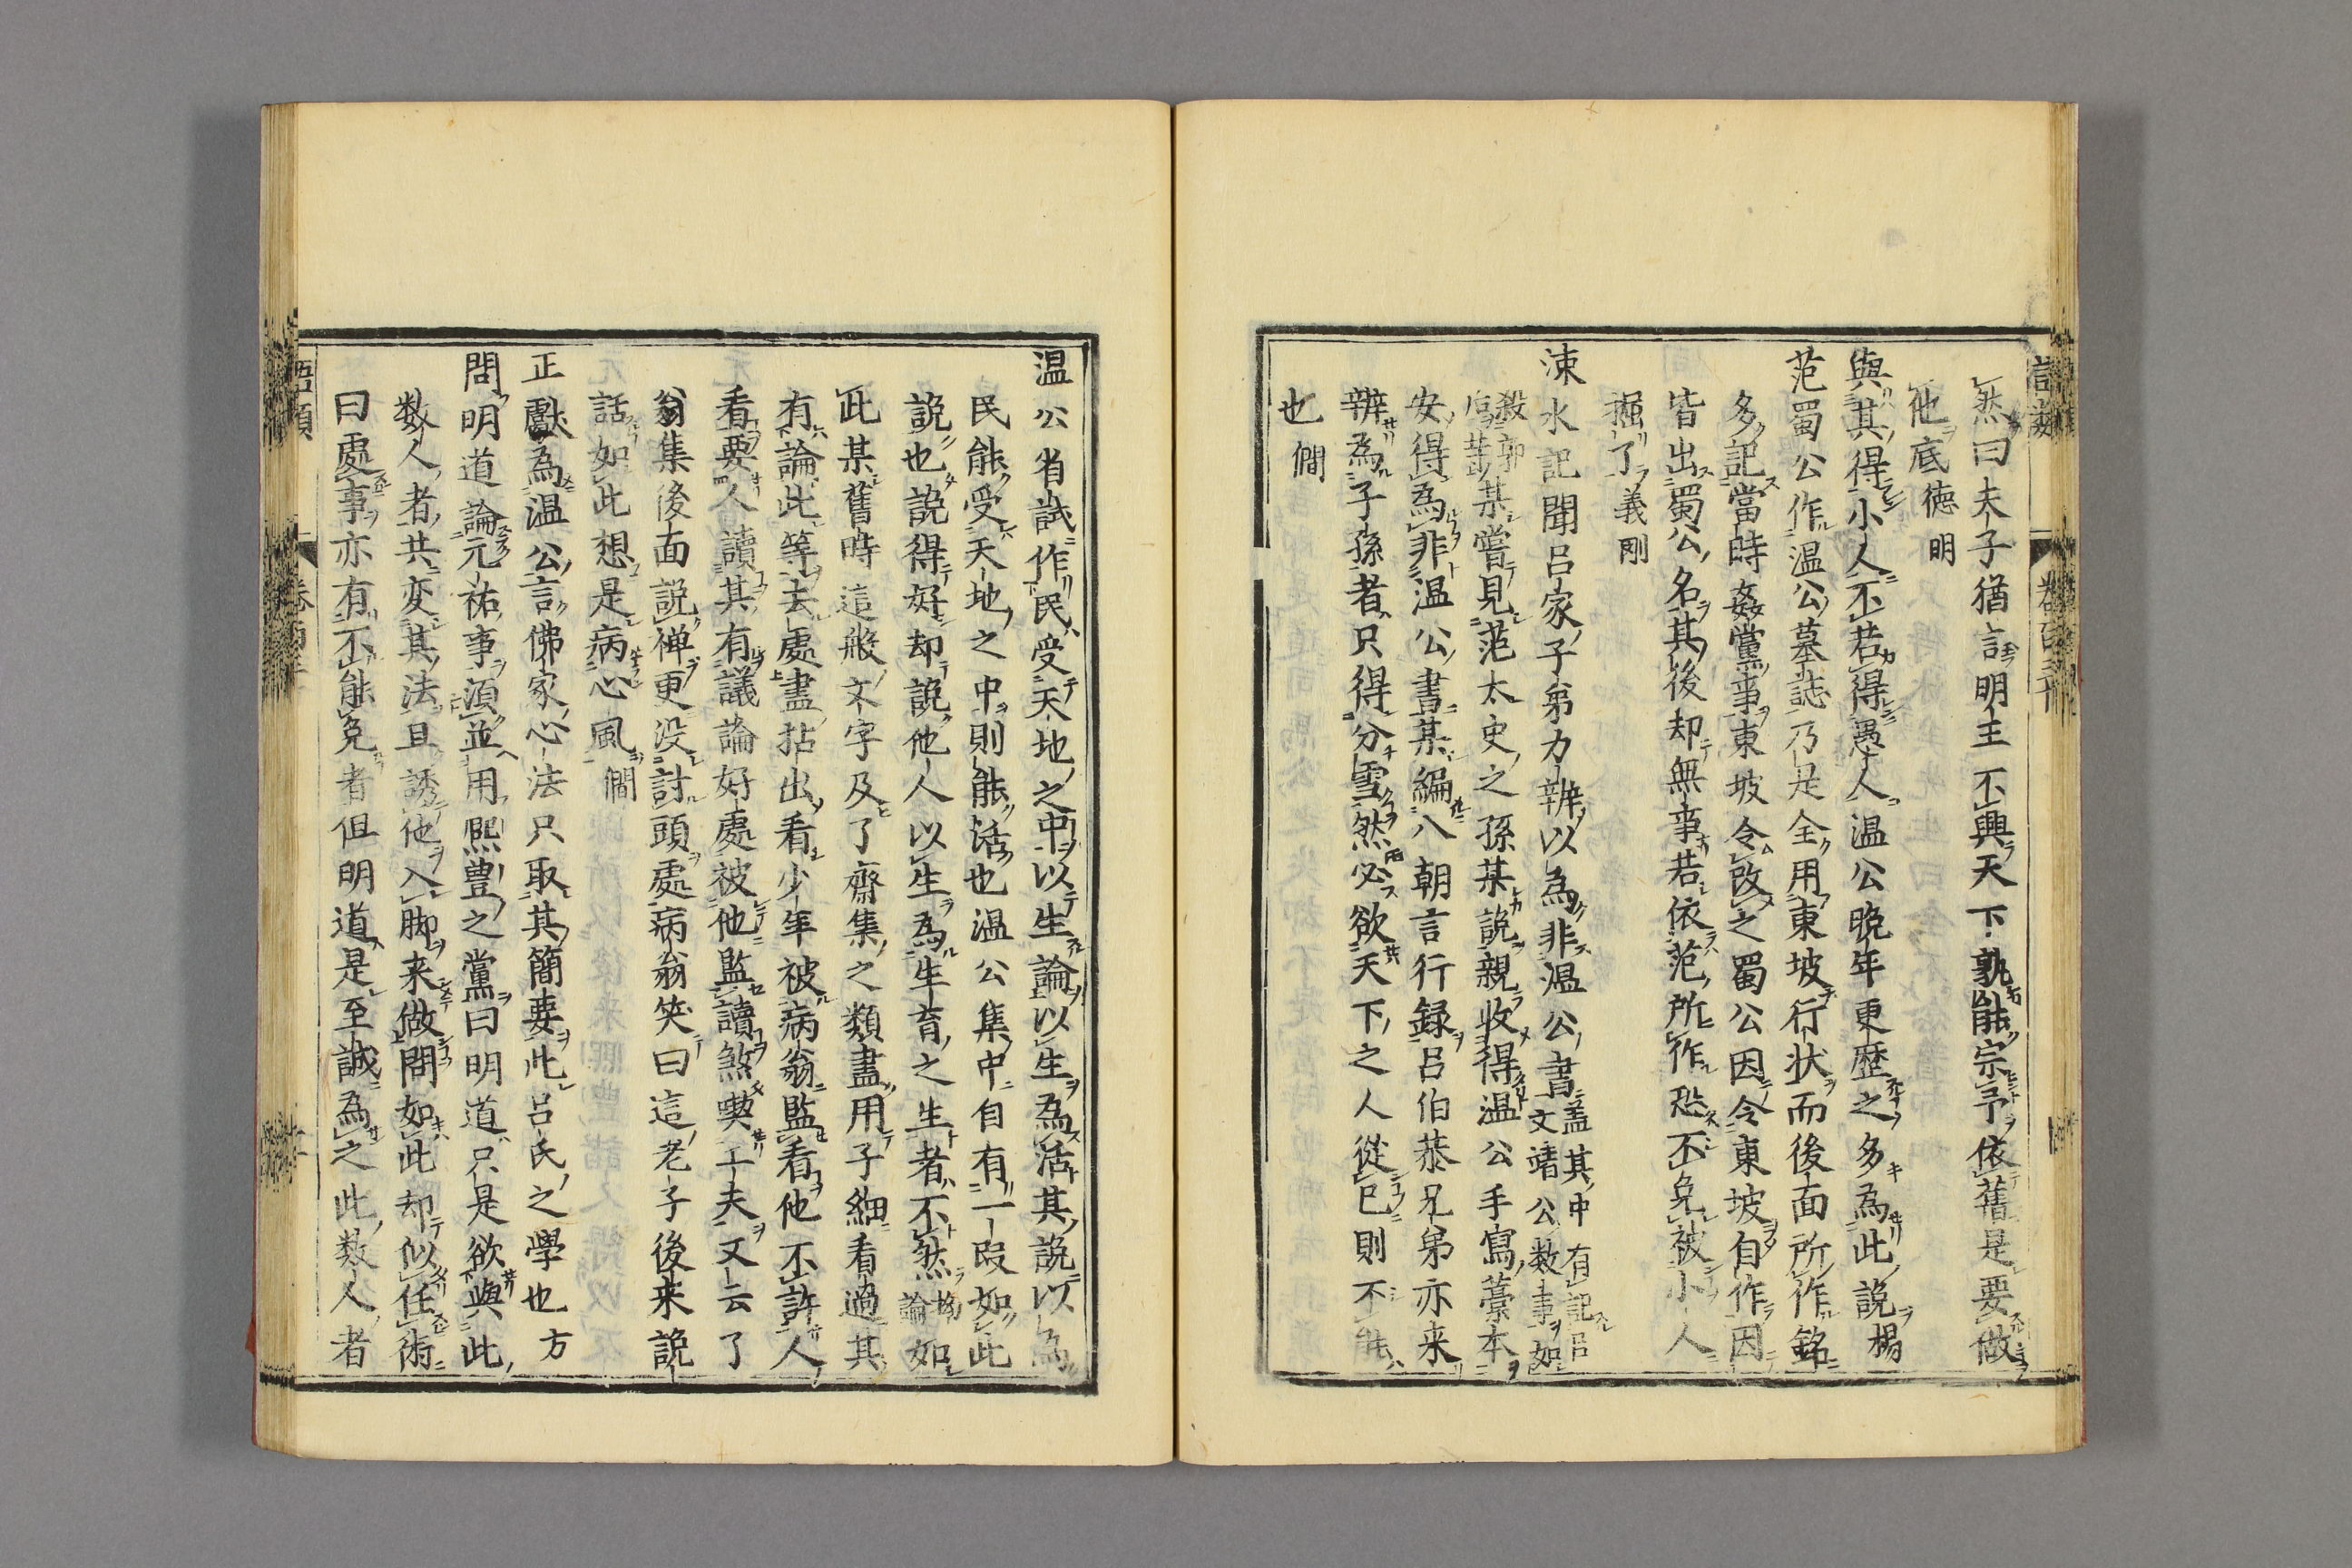 然曰夫子猶言明主不興天下孰能宗予依舊是要做
他底德明
與其得小人不若得愚人温公晩年更歷之多為此說楊
范蜀公作温公墓誌乃是全用東坡行状而後面所作銘
多記當時姦黨事東坡令改之蜀公因令東坡自作因
皆出蜀公名其後却無事若依范所作恐不免被小人
掘了義剛
涑水記聞呂家子弟力辨以為非温公書盖其中有記呂文靖公数事如
殺郭后等某嘗見范太史之孫某說親收得温公手寫藁本
安得為非温公書某編八朝言行録呂伯恭兄弟亦来
辨為子孫者只得分雪然必欲天下之人從已則不能
也僩
温公省試作民受天地之中以生論以生為活其說以為
民能受天地之中則能活也温公集中自有一段如此
說也說得好却說他人以生為生育之生者不然拗論如
此某舊時這般文字及了齋集之類盡用子細看過其
有論此等去處盡拈出看少年被病翁監看他不許人
看要人讀其有議論好處被他監讀煞喫工夫又云了
翁集後面說禅更没討頭處病翁笑曰這老子後来說
話如此想是病心風僩
正獻為温公言佛家心法只取其簡要此呂氏之學也方
問明道論元祐事湏並用熙豊之黨曰明道只是欲與此
数人者共変其法且誘他入脚来做問如此却似任術
曰處事亦有不能免者但明道是至誠為之此数人者